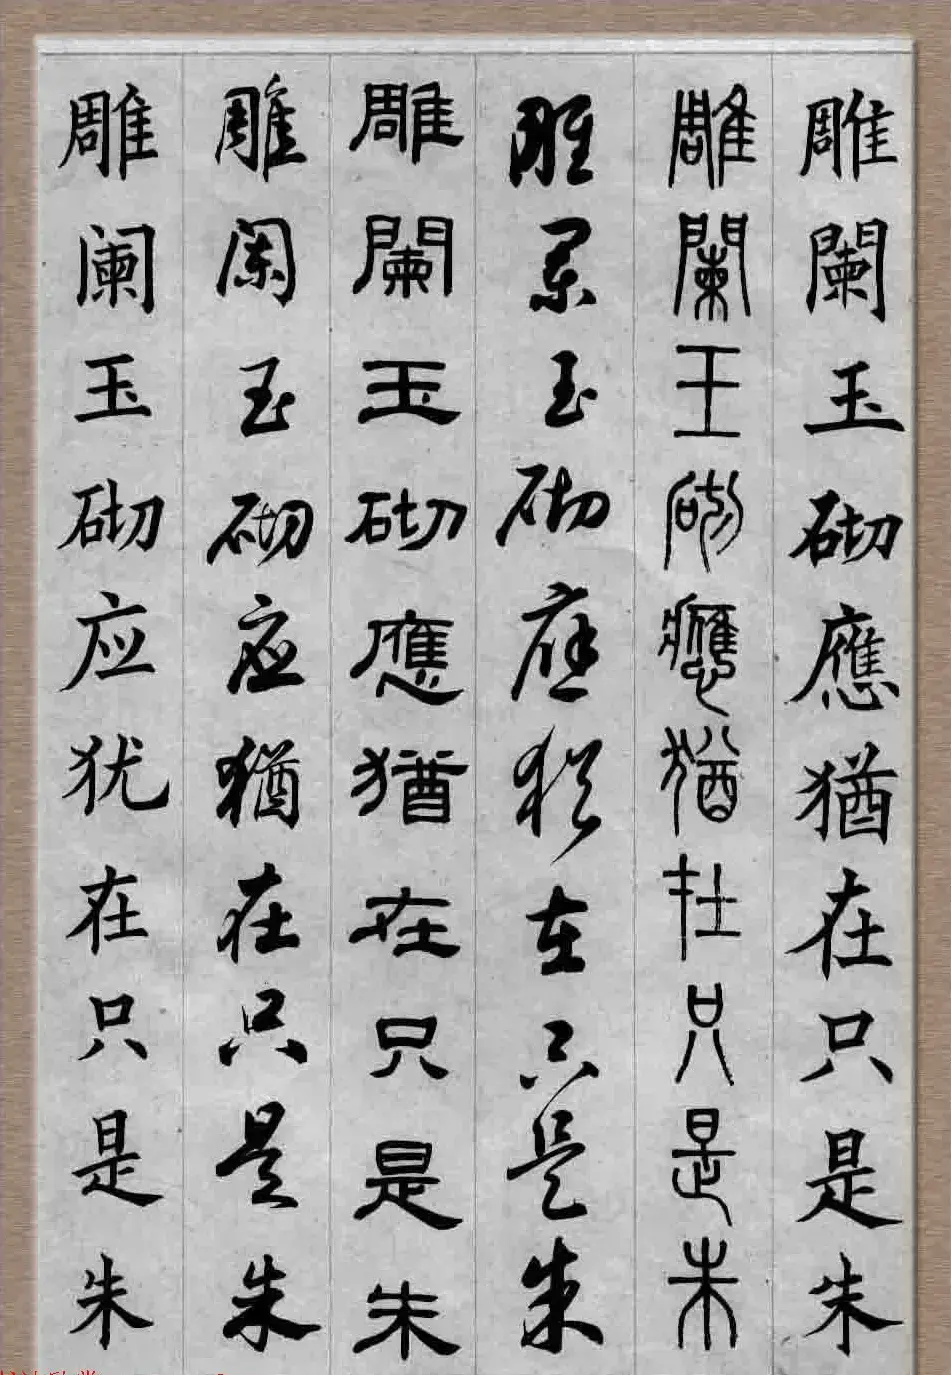 雕闌玉砌應猶在只是朱
雕闌玉砌應猶在只是朱
雕阑玉砌应犹在只是朱
雕闌玉砌應猶在只是朱
雕阑玉砌应猶在只是朱
雕阑玉砌应犹在只是朱